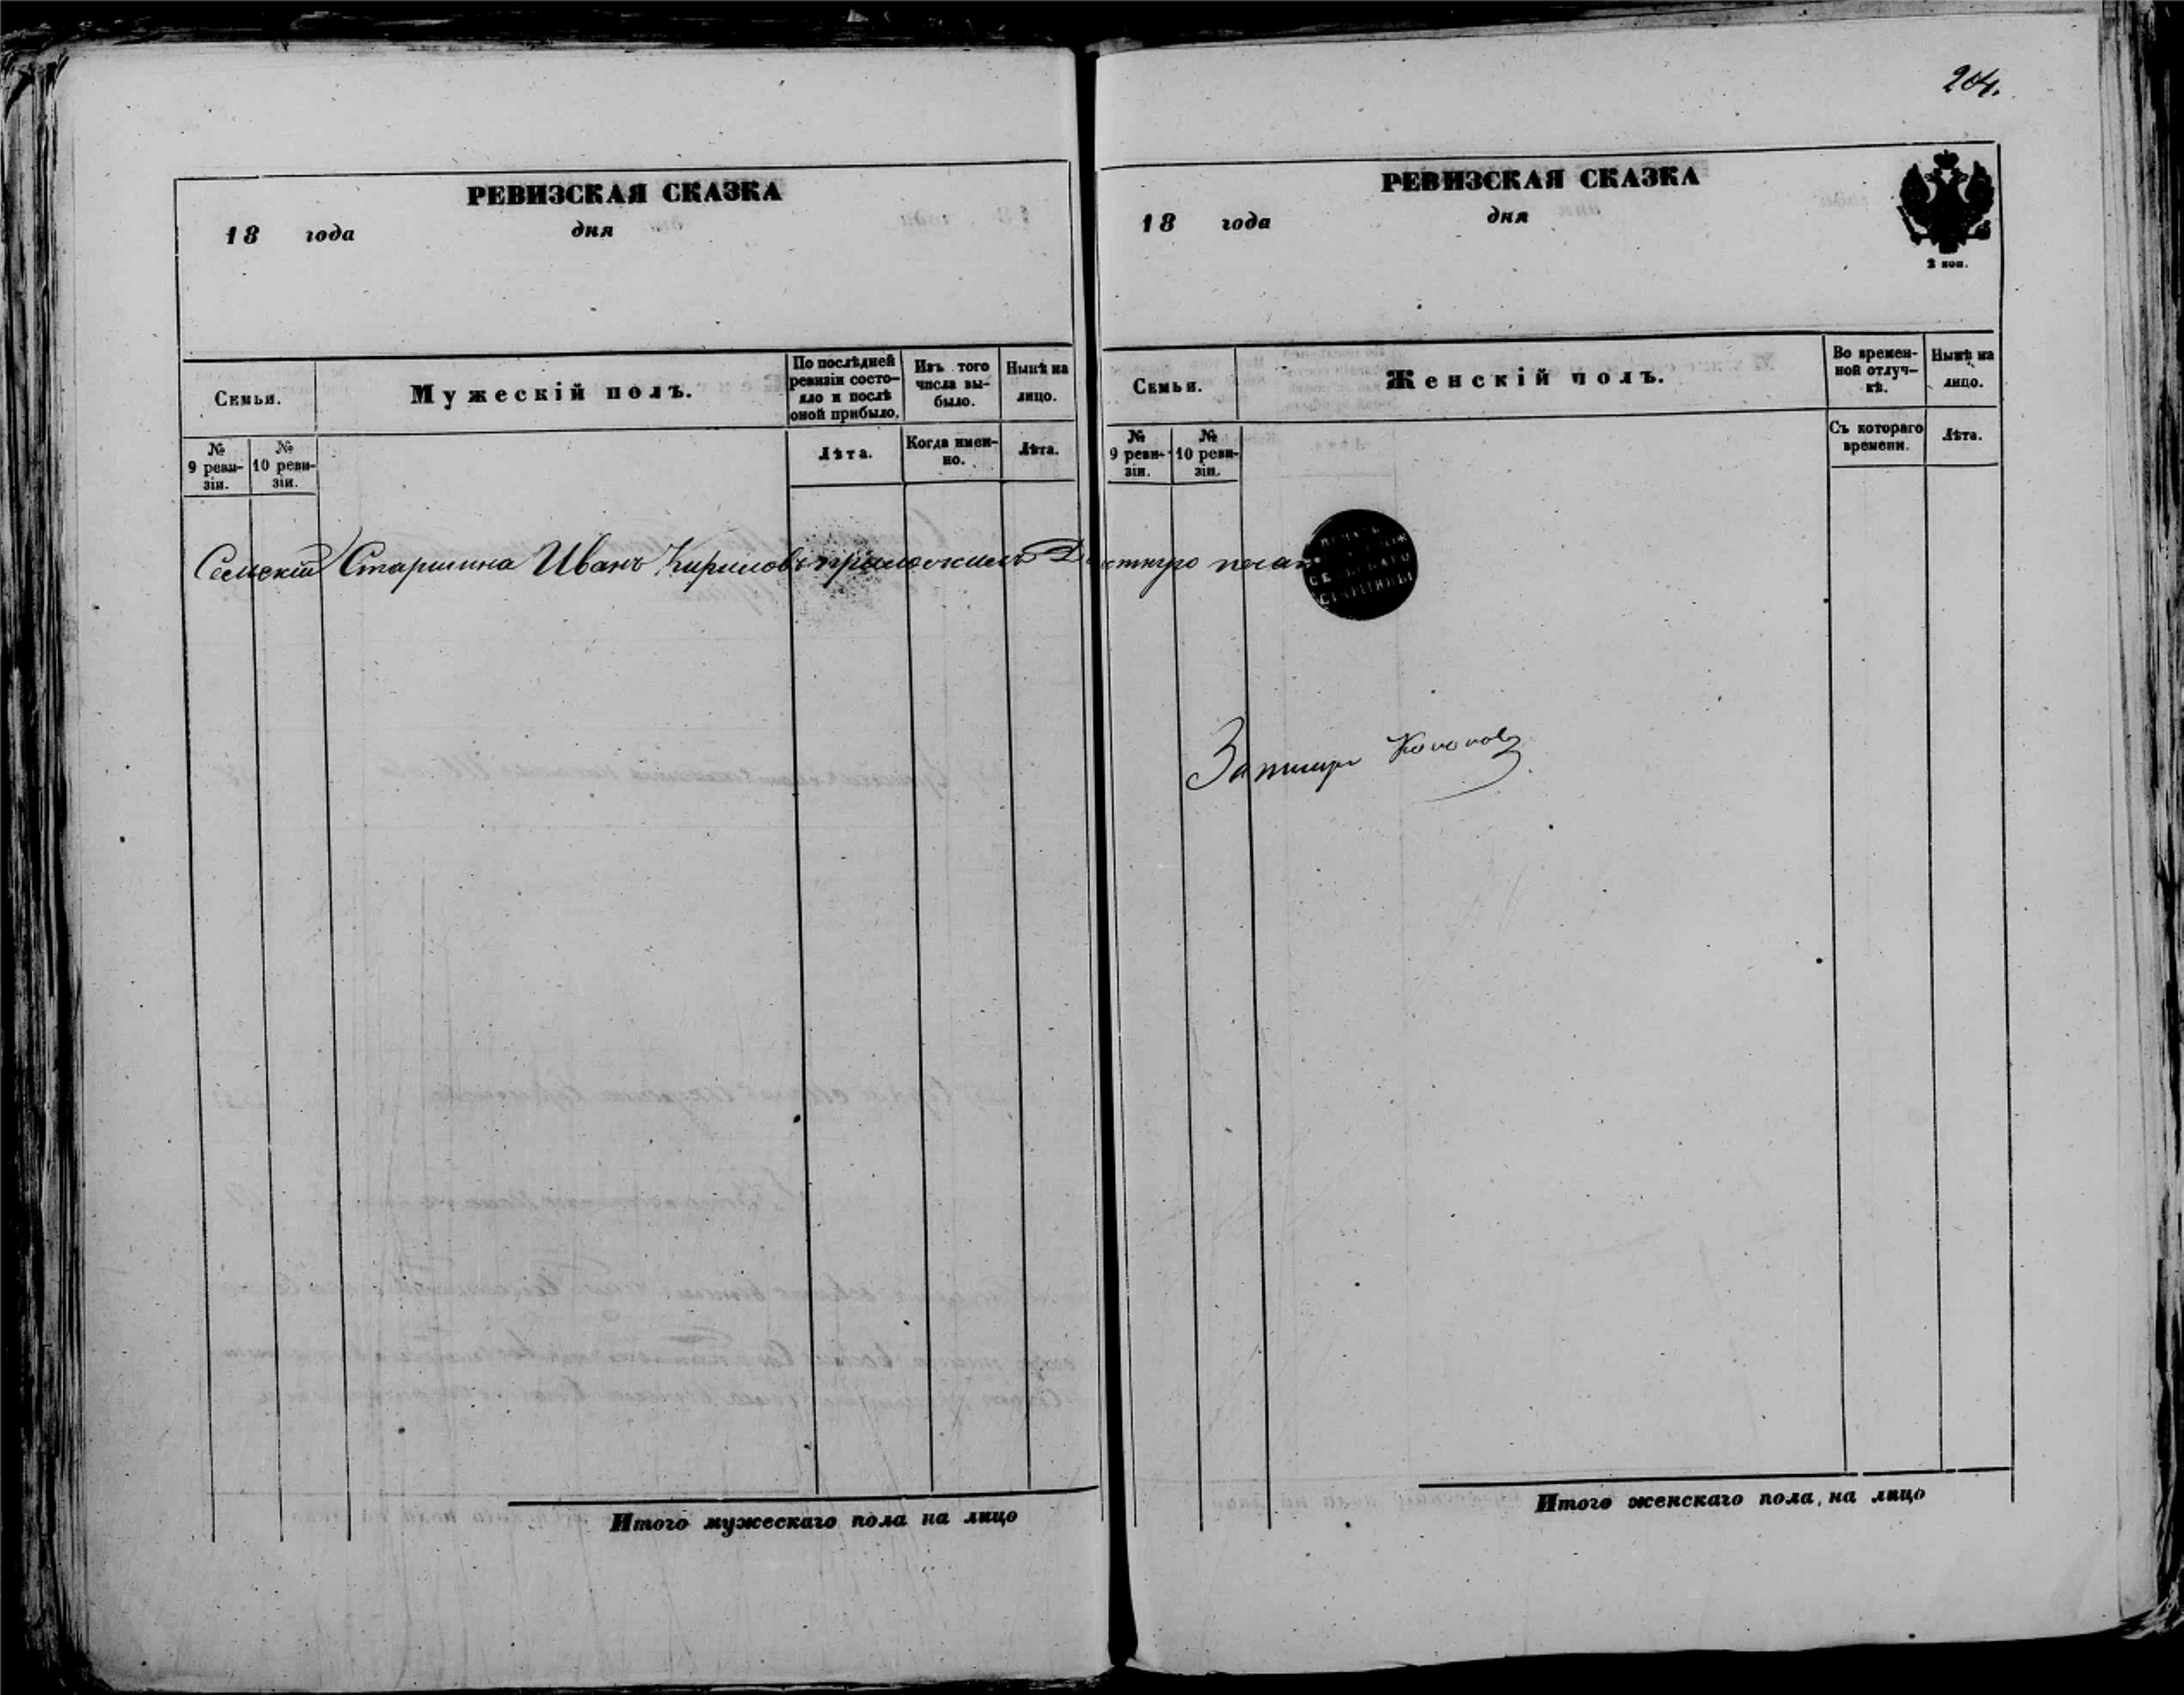 204.
РЕВИЗСКАЯ СКАЗКА
18 года дня
Семьи.
Мужескій полъ.
По послѣдней ревизіи состо-
яло и послѣ оной прибыло.
Изъ того числа вы-
было.
Нынѣ на лицо.
№ 9 реви-
зіи.
№ 10 реви-
зіи.
Лѣта.
Когда имен-
но.
Лѣта.
Селскій Старшина Иванъ Кириловъ приложилъ
Итого мужескаго пола на лицо
РЕВИЗСКАЯ СКАЗКА
18 года дня
2 коп.
Семьи.
Женскій полъ.
Во времен-
ной отлуч-
кѣ.
Нынѣ на лицо.
№ 9 реви-
зіи.
№ 10 реви-
зіи.
Съ котораго времени.
Лѣта.
СЕЛЬСКАГО
СТАРШИНЫ
Итого женскаго пола на лицо